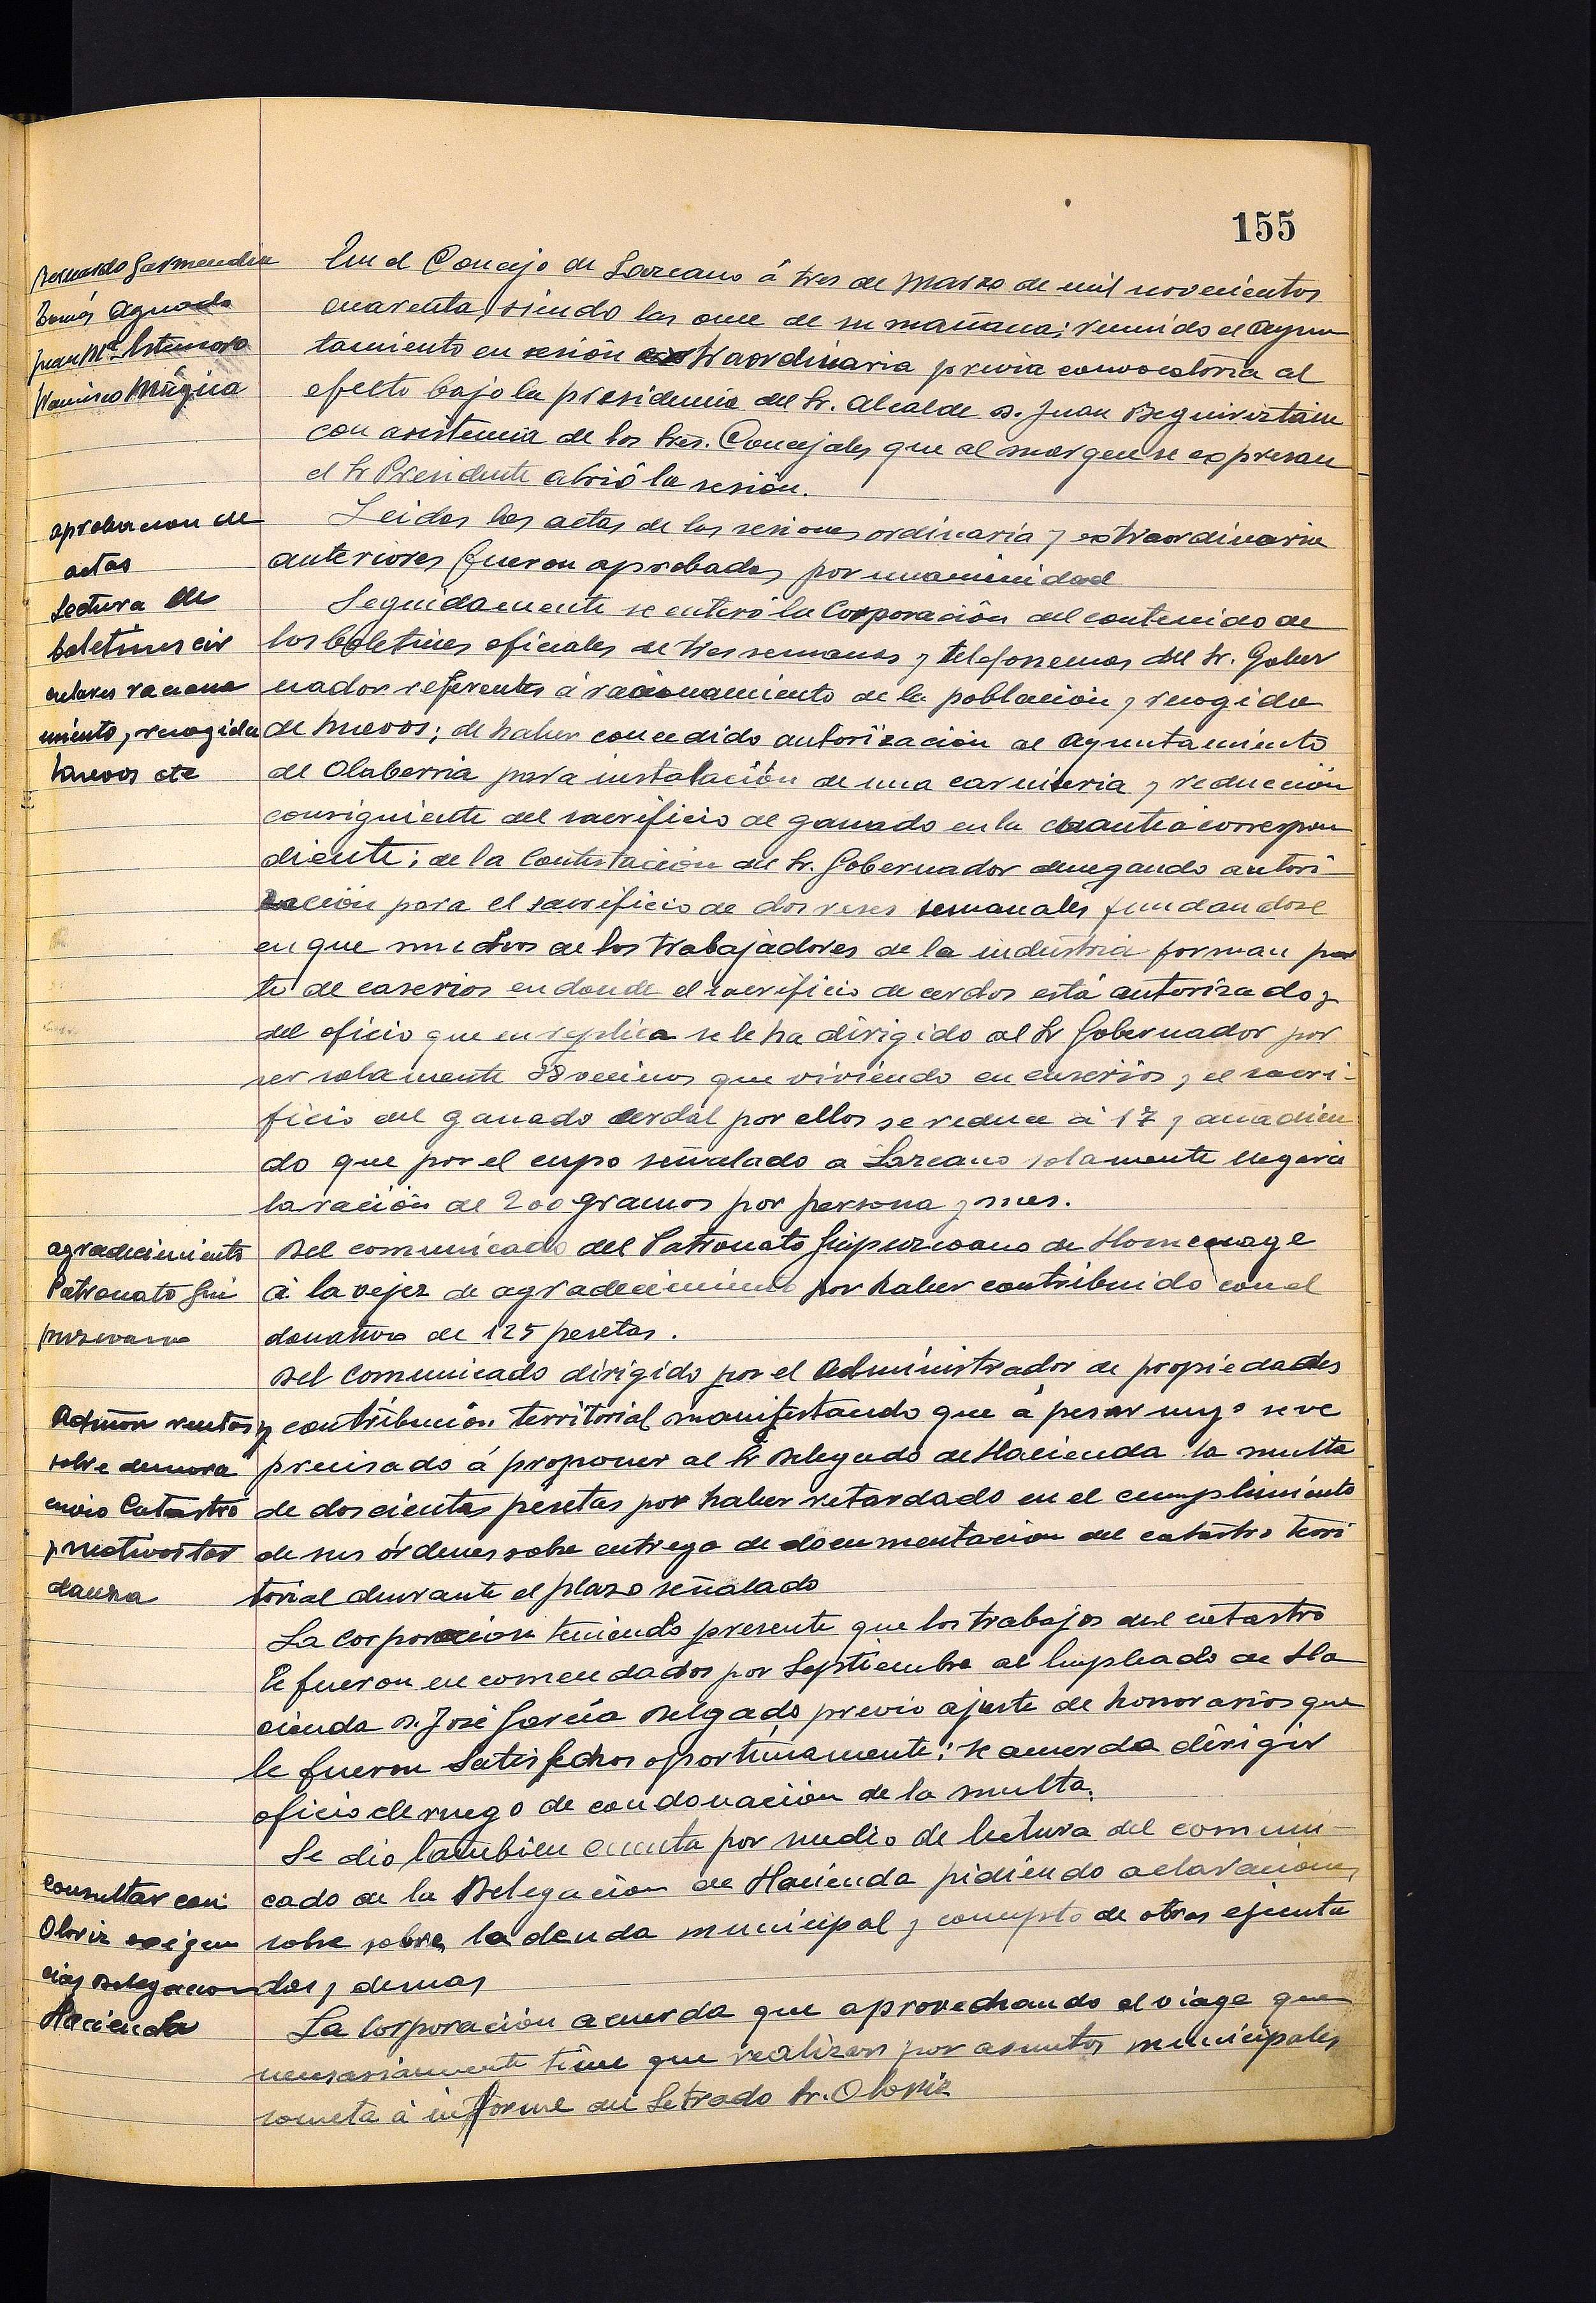 155
Bernardo Garmendia
Tomás Aguado
Juan Mª
Francisco Múgica
En el Concejo de Lazcano á tres de Marzo de mil novecientos
cuarenta, siendo las once de su mañana; reunido el Ayun
tamiento en sesión extraordinaria previa convocatoria al
efecto bajo la presidencia del Sr. Alcalde D. Juan Beguiristain
con asistencia de los Sres. Concejales que al margen se expresan
el Sr Presidente abrió la sesión.
aprobacion de
actas
Leidas las actas de las sesiones ordinaria y extraordinaria
anteriores fueron aprobadas por unanimidad
Lectura de
boletines cir
culares raciona
miento, recogida
huevos etc
Seguidamente se enteró la Corporación del contenido de
los boletines oficiales de tres semanas y telefonemas del Sr. Gober
nador referentes á racionamiento de la población y recogida
de huevos; de haber concedido autorización al Ayuntamiento
de Olaberria para instalación de una carniceria y reducción
consiguiente del sacrificio de ganado en la cuantia correspon
diente; de la Contestación del Sr. Gobernador denegando autori-
zación para el sacrificio de dos reses semanales fundandose
en que muchos de los trabajadores de la industria forman par
te de caserios en donde el sacrificio de cerdos está autorizado y
del oficio que en replica se le ha dirigido al Sr Gobernador por
ser solamente vecinos que viviendo en caserios, el sacri-
ficio del ganado cerdal por ellos se reduce á 17 y añadien
do que por el cupo señalado a Lazcano solamente llegaria
la ración de 200 gramos por persona y mes.
agradecimiento
Patronato Gui
puzcoano
Del comunicado del Patronato Guipuzcoano de Homenage
á la vejez de agradecimiento por haber contribuido con el
donativo de 125 pesetas.
Admón rentas
sobre demora
envio Catastro
y motivos tar
danza
Del comunicado dirigido por el Administrador de propiedades
y contribución territorial manifestando que á pesar suyo se ve
precisado á proponer al Sr Delegado de Hacienda la multa
de doscientas pesetas por haber retardado en el cumplimiento
de sus órdenes sobre entrega de documentacion del catastro terri
torial durante el plazo señalado
La corporacion teniendo presente que los trabajos del catastro
le fueron encomendados por Septiembre al Empleado de Ha
cienda D. José Garcia Delgado previo ajuste de honorarios que
le fueron satisfechos oportunamente; se acuerda dirigir
oficio de ruego de condonación de la multa.
consultar con
Oloriz exigen
cias Delegacion
Hacienda
Se dio tambien cuenta por medio de lectura del comuni-
cado de la Delegacion de Hacienda pidiendo aclaraciones
sobre sobre la deuda municipal y concepto de obras ejecuta
das y demas
La Corporación acuerda que aprovechando el viage que
necesariamente tiene que realizar por asuntos municipales
someta á informe del Letrado Sr. Oloriz